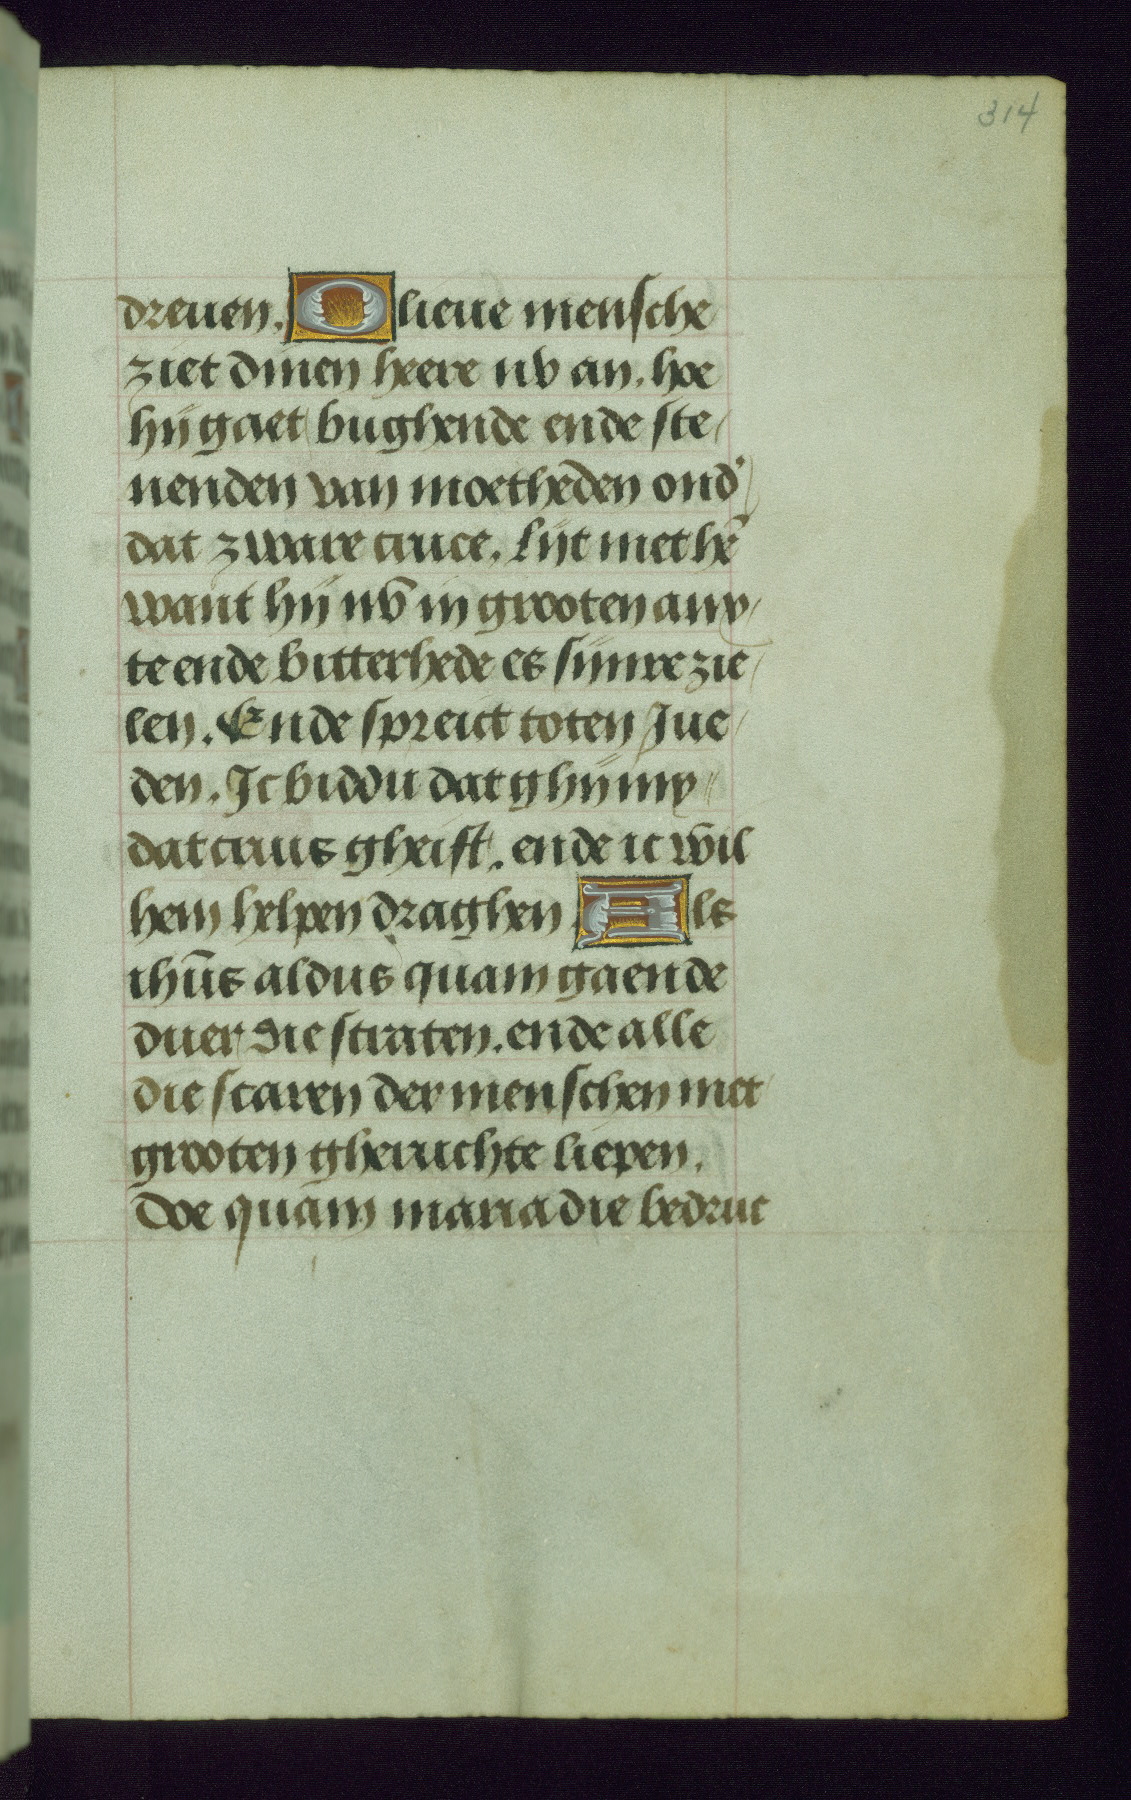 314
dreuen. O lieue mensche
ziet dinen heere nv an. hoe
hij gaet bughende ende ste/
nenden van moetheden ond'
dat zware cruce. Lijt met hē
want hij nv in grooten auw/
te ende bitterhede es sijnre zie/
len. Ende spreict toten Jue/
den. Ic biddu dat ghij my
dat cruus gheift. ende ic wil
hem helpen draghen. Als
ihūs aldus quam gaende
duer die straten. ende alle
die scaren der menschen met
grooten gheruchte liepen.
Doe quam maria die bedruc